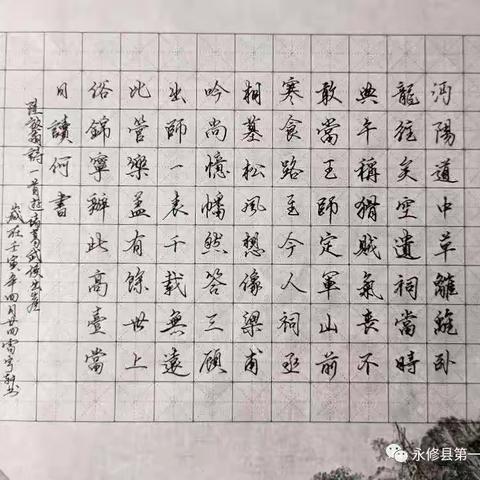 沔陽道中草離離卧
龍往矣空遺祠當時
典午稱猾賊氣喪不
敢當王師定軍山前
寒食路至今人祠丞
相墓松風想像梁甫
吟尚憶幡然答三顧
出師一表千載無遠
比管樂蓋有餘世上
俗錦寧辦此高臺當
日讀何書
陸放翁詩一首遊諸葛武侯書臺
歲在壬寅年四月廿四
永修县第一